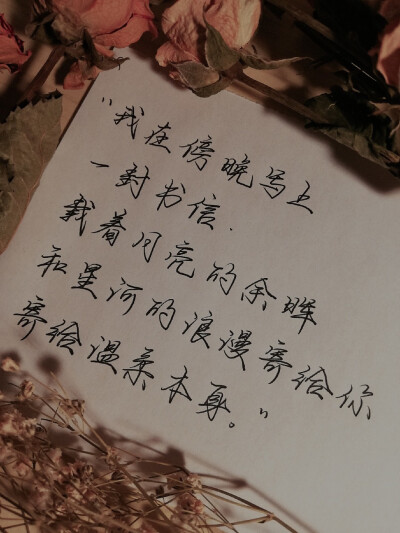 "我在傍晚写上
一封书信.
载着月亮的余晖
和星河的浪漫寄给你
寄给温柔本身。"